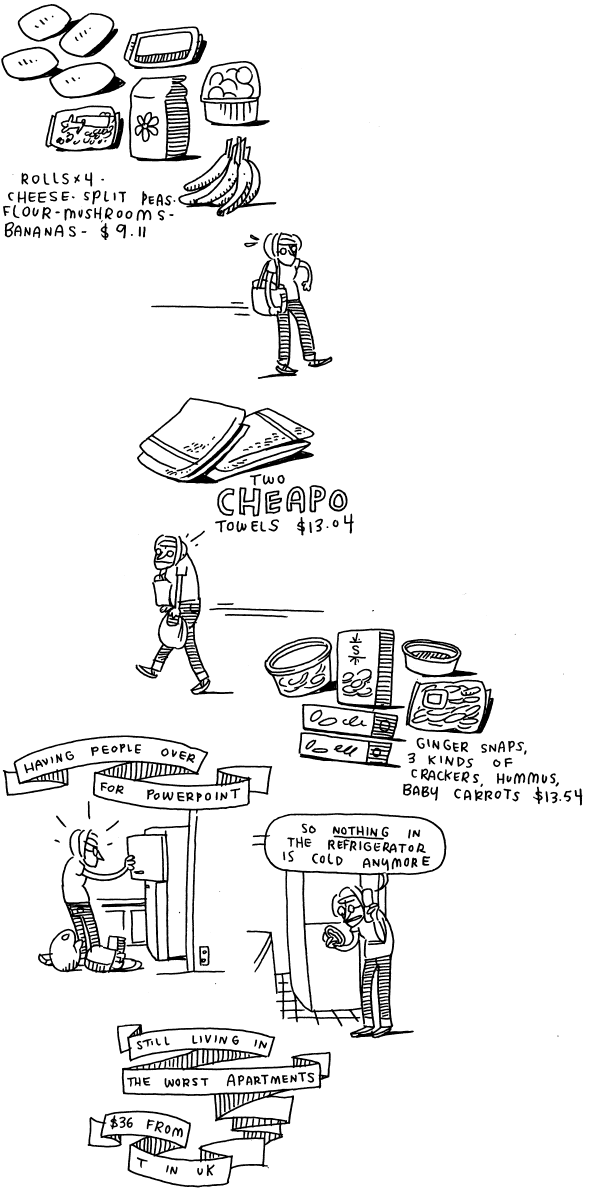 ROLLS x 4 -
CHEESE - SPLIT PEAS -
FLOUR - MUSHROOMS -
BANANAS - $9.11
TWO
CHEAPO
TOWELS $13.04
S
GINGER SNAPS,
3 KINDS OF
CRACKERS, HUMMUS,
BABY CARROTS $13.54
HAVING PEOPLE OVER
FOR POWERPOINT
SO NOTHING IN
THE REFRIGERATOR
IS COLD ANYMORE
STILL LIVING IN
THE WORST APARTMENTS
$36 FROM
T IN UK